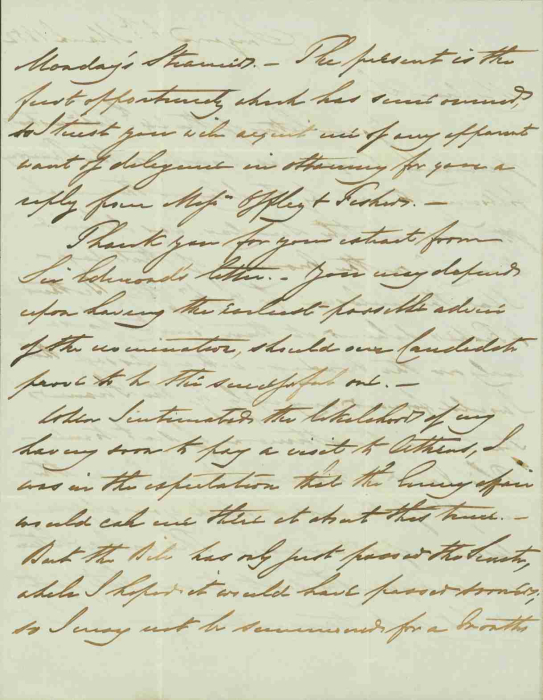 Monday's Steamer. – The present is the
first opportunity which has since occurred,
so I trust you will acquit me of any apparent
want of diligence in obtaining for you a
reply from Messrs Offley & Fisher. –
Thank you for your extract from
Sir Edmond's letter. – You may depend
upon having the earliest possible advice
of the nomination, should our Candidate
prove to be the successful one. –
When I intimated the likelihood of my
having soon to pay a visit to Athens, I
was in the expectation that the affair
would call me there at about this time. –
But the Bill has only just passed the Senate,
while I hoped it would have passed sooner;
so I may not be summoned for a Month's